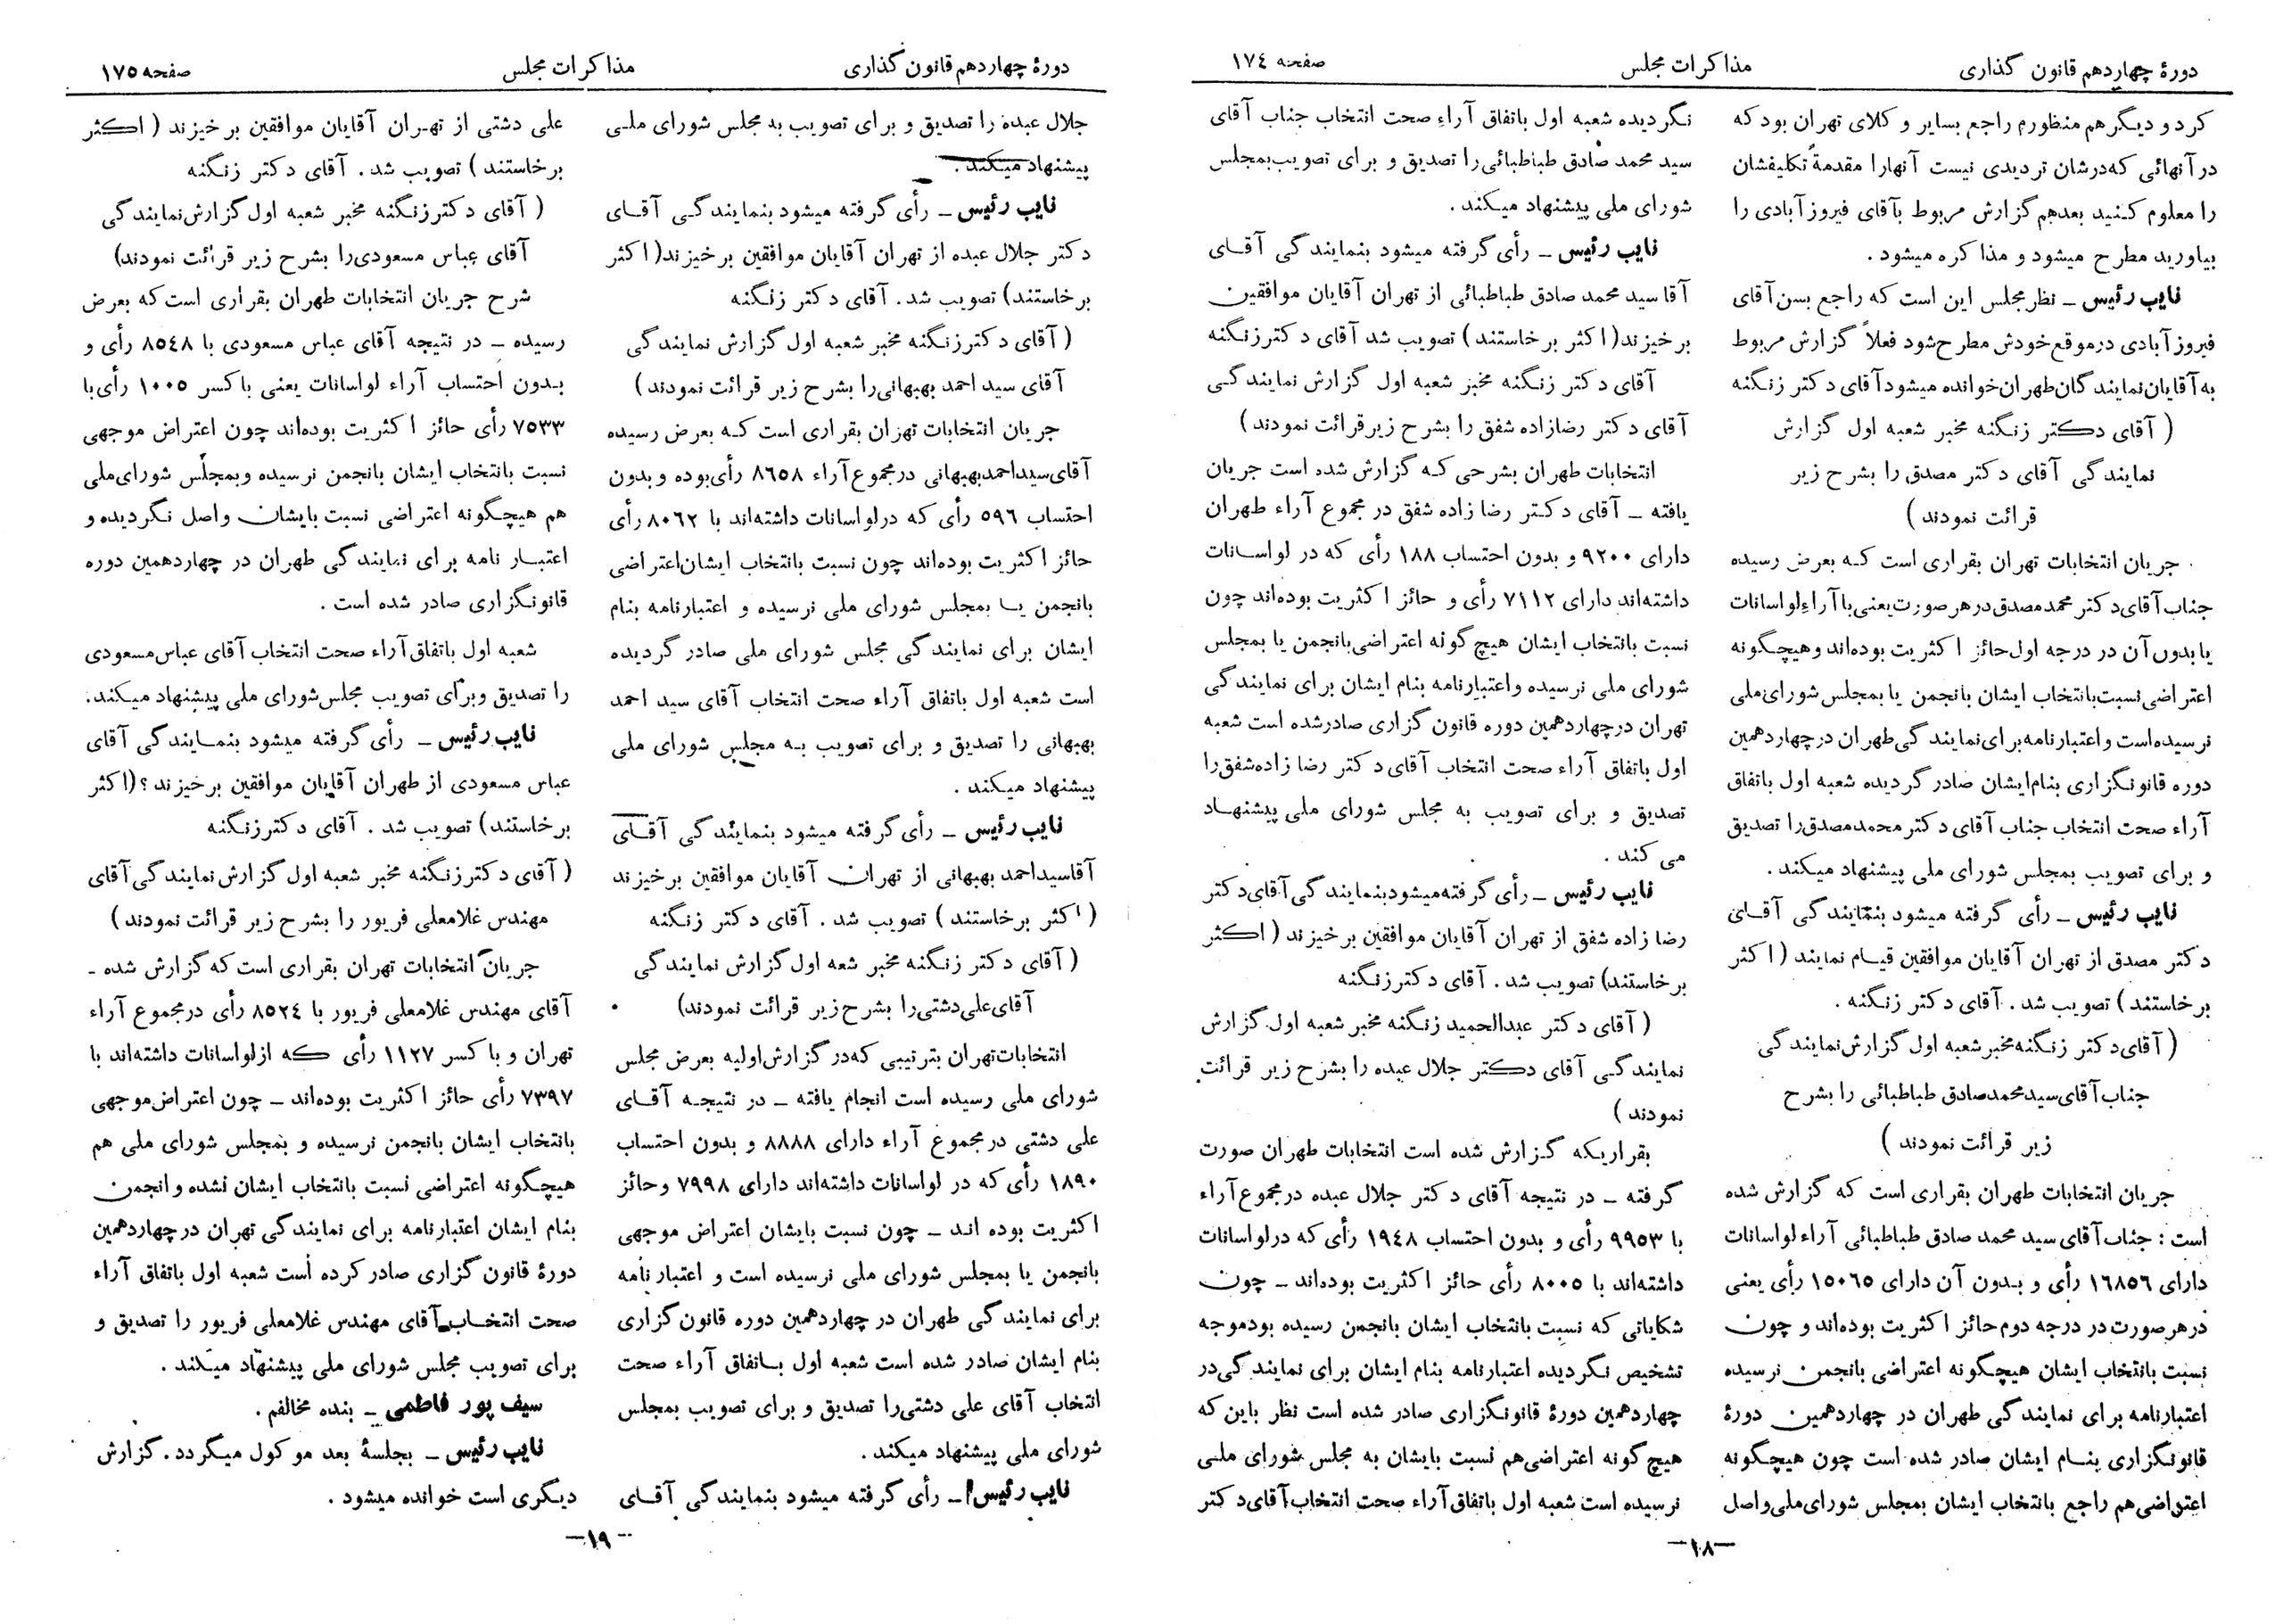 دورهٔ چهاردهم قانون گذاری
مذاکرات مجلس
صفحه ۱۷٤
کرد و دیگر هم منظورم راجع بسایر وکلای تهران بود که
در آنهائی که درشان تردیدی نیست آنها را مقدمةً تکلیفشان
را معلوم کنید بعد هم گزارش مربوط بآقای فیروز آبادی را
بیاورید مطرح میشود و مذاکره میشود .
نایب رئیس ـ نظر مجلس این است که راجع بسن آقای
فیروز آبادی در موقع خودش مطرح شود فعلاً گزارش مربوط
به آقایان نمایندگان طهران خوانده میشود آقای دکتر زنگنه
( آقای دکتر زنگنه مخبر شعبه اول گزارش
نمایندگی آقای دکتر مصدق را بشرح زیر
قرائت نمودند )
جریان انتخابات تهران بقراری است که بعرض رسیده
جناب آقای دکتر محمد مصدق در هر صورت یعنی با آراء لواسانات
یا بدون آن در درجه اول حائز اکثریت بوده‌اند و هیچگونه
اعتراضی نسبت بانتخاب ایشان بانجمن یا بمجلس شورای ملی
نرسیده است و اعتبارنامه برای نمایندگی طهران در چهاردهمین
دوره قانونگزاری بنام ایشان صادر گردیده شعبه اول باتفاق
آراء صحت انتخاب جناب آقای دکتر محمد مصدق را تصدیق
و برای تصویب بمجلس شورای ملی پیشنهاد میکند .
نایب رئیس ـ رأی گرفته میشود بنمایندگی آقای
دکتر مصدق از تهران آقایان موافقین قیام نمایند ( اکثر
برخاستند ) تصویب شد . آقای دکتر زنگنه .
( آقای دکتر زنگنه مخبر شعبه اول گزارش نمایندگی
جناب آقای سید محمد صادق طباطبائی را بشرح
زیر قرائت نمودند )
جریان انتخابات طهران بقراری است که گزارش شده
است : جناب آقای سید محمد صادق طباطبائی آراء لواسانات
دارای ۱٦۸۵٦ رأی و بدون آن دارای ۱۵۰٦۵ رأی یعنی
در هر صورت در درجه دوم حائز اکثریت بوده‌اند و چون
نسبت بانتخاب ایشان هیچگونه اعتراضی بانجمن نرسیده
اعتبارنامه برای نمایندگی طهران در چهاردهمین دورهٔ
قانونگزاری بنام ایشان صادر شده است چون هیچگونه
اعتراضی هم راجع بانتخاب ایشان بمجلس شورای ملی واصل
نگردیده شعبه اول باتفاق آراء صحت انتخاب جناب آقای
سید محمد صادق طباطبائی را تصدیق و برای تصویب بمجلس
شورای ملی پیشنهاد میکند .
نایب رئیس ـ رأی گرفته میشود بنمایندگی آقای
آقا سید محمد صادق طباطبائی از تهران آقایان موافقین
برخیزند ( اکثر برخاستند ) تصویب شد آقای دکتر زنگنه
آقای دکتر زنگنه مخبر شعبه اول گزارش نمایندگی
آقای دکتر رضازاده شفق را بشرح زیر قرائت نمودند )
انتخابات طهران بشرحی که گزارش شده است جریان
یافته ـ آقای دکتر رضا زاده شفق در مجموع آراء طهران
دارای ۹۲۰۰ و بدون احتساب ۱۸۸ رأی که در لواسانات
داشته‌اند دارای ۷۱۱۲ رأی و حائز اکثریت بوده‌اند چون
نسبت بانتخاب ایشان هیچ گونه اعتراضی بانجمن یا بمجلس
شورای ملی نرسیده و اعتبارنامه بنام ایشان برای نمایندگی
تهران در چهاردهمین دوره قانون گزاری صادر شده است شعبه
اول باتفاق آراء صحت انتخاب آقای دکتر رضا زاده شفق را
تصدیق و برای تصویب به مجلس شورای ملی پیشنهاد
می کند .
نایب رئیس ـ رأی گرفته میشود بنمایندگی آقای دکتر
رضا زاده شفق از تهران آقایان موافقین برخیزند ( اکثر
برخاستند) تصویب شد . آقای دکتر زنگنه
( آقای دکتر عبدالحمید زنگنه مخبر شعبه اول گزارش
نمایندگی آقای دکتر جلال عبده را بشرح زیر قرائت
نمودند )
بقراریکه گزارش شده است انتخابات طهران صورت
گرفته ـ در نتیجه آقای دکتر جلال عبده در مجموع آراء
با ۹۹۵۳ رأی و بدون احتساب ۱۹٤۸ رأی که در لواسانات
داشته‌اند با ۸۰۰۵ رأی حائز اکثریت بوده‌اند ـ چون
شکایاتی که نسبت بانتخاب ایشان بانجمن رسیده بود موجه
تشخیص نگردیده اعتبارنامه بنام ایشان برای نمایندگی در
چهاردهمین دورهٔ قانونگزاری صادر شده است نظر باین که
هیچ گونه اعتراضی هم نسبت بایشان به مجلس شورای ملی
نرسیده است شعبه اول باتفاق آراء صحت انتخاب آقای دکتر
ـ۱۸ـ
دورهٔ چهاردهم قانون گذاری
مذاکرات مجلس
صفحه ۱۷۵
جلال عبده را تصدیق و برای تصویب به مجلس شورای ملی
پیشنهاد میکند .
نایب رئیس ـ رأی گرفته میشود بنمایندگی آقای
دکتر جلال عبده از تهران آقایان موافقین برخیزند ( اکثر
برخاستند) تصویب شد . آقای دکتر زنگنه
( آقای دکتر زنگنه مخبر شعبه اول گزارش نمایندگی
آقای سید احمد بهبهانی را بشرح زیر قرائت نمودند )
جریان انتخابات تهران بقراری است که بعرض رسیده
آقای سید احمد بهبهانی در مجموع آراء ۸٦۵۸ رأی بوده و بدون
احتساب ۵۹٦ رأی که در لواسانات داشته‌اند با ۸۰٦۲ رأی
حائز اکثریت بوده‌اند چون نسبت بانتخاب ایشان اعتراضی
بانجمن یا بمجلس شورای ملی نرسیده و اعتبارنامه بنام
ایشان برای نمایندگی مجلس شورای ملی صادر گردیده
است شعبه اول باتفاق آراء صحت انتخاب آقای سید احمد
بهبهانی را تصدیق و برای تصویب به مجلس شورای ملی
پیشنهاد میکند .
نایب رئیس ـ رأی گرفته میشود بنمایندگی آقای
آقا سید احمد بهبهانی از تهران آقایان موافقین برخیزند
( اکثر برخاستند ) تصویب شد . آقای دکتر زنگنه
( آقای دکتر زنگنه مخبر شعه اول گزارش نمایندگی
آقای علی دشتی را بشرح زیر قرائت نمودند)
انتخابات تهران بترتیبی که در گزارش اولیه بعرض مجلس
شورای ملی رسیده است انجام یافته ـ در نتیجه آقای
علی دشتی در مجموع آراء دارای ۸۸۸۸ و بدون احتساب
۱۸۹۰ رأی که در لواسانات داشته‌اند دارای ۷۹۹۸ و حائز
اکثریت بوده اند ـ چون نسبت بایشان اعتراض موجهی
بانجمن یا بمجلس شورای ملی نرسیده است و اعتبار نامه
برای نمایندگی طهران در چهاردهمین دوره قانون گزاری
بنام ایشان صادر شده است شعبه اول باتفاق آراء صحت
انتخاب آقای علی دشتی را تصدیق و برای تصویب بمجلس
شورای ملی پیشنهاد میکند .
نایب رئیس ـ رأی گرفته میشود بنمایندگی آقای
علی دشتی از تهران آقایان موافقین برخیزند ( اکثر
برخاستند ) تصویب شد . آقای دکتر زنگنه
( آقای دکتر زنگنه مخبر شعبه اول گزارش نمایندگی
آقای عباس مسعودی را بشرح زیر قرائت نمودند)
شرح جریان انتخابات طهران بقراری است که بعرض
رسیده ـ در نتیجه آقای عباس مسعودی با ۸۵٤۸ رأی و
بدون احتساب آراء لواسانات یعنی با کسر ۱۰۰۵ رأی با
۷۵۳۳ رأی حائز اکثریت بوده‌اند چون اعتراض موجهی
نسبت بانتخاب ایشان بانجمن نرسیده و بمجلس شورای ملی
هم هیچگونه اعتراضی نسبت بایشان واصل نگردیده و
اعتبار نامه برای نمایندگی طهران در چهاردهمین دوره
قانونگزاری صادر شده است .
شعبه اول باتفاق آراء صحت انتخاب آقای عباس مسعودی
را تصدیق و برای تصویب مجلس شورای ملی پیشنهاد میکند.
نایب رئیس ـ رأی گرفته میشود بنمایندگی آقای
عباس مسعودی از طهران آقایان موافقین برخیزند ؟ (اکثر
برخاستند) تصویب شد . آقای دکتر زنگنه
( آقای دکتر زنگنه مخبر شعبه اول گزارش نمایندگی آقای
مهندس غلامعلی فریور را بشرح زیر قرائت نمودند )
جریان انتخابات تهران بقراری است که گزارش شده ـ
آقای مهندس غلامعلی فریور با ۸۵۲٤ رأی در مجموع آراء
تهران و با کسر ۱۱۲۷ رأی که از لواسانات داشته‌اند با
۷۳۹۷ رأی حائز اکثریت بوده‌اند ـ چون اعتراض موجهی
بانتخاب ایشان بانجمن نرسیده و بمجلس شورای ملی هم
هیچگونه اعتراضی نسبت بانتخاب ایشان نشده و انجمن
بنام ایشان اعتبارنامه برای نمایندگی تهران در چهاردهمین
دورهٔ قانون گزاری صادر کرده است شعبه اول باتفاق آراء
صحت انتخاب آقای مهندس غلامعلی فریور را تصدیق و
برای تصویب مجلس شورای ملی پیشنهاد میکند .
سیف پور فاطمی ـ بنده مخالفم .
نایب رئیس ـ بجلسهٔ بعد موکول میگردد . گزارش
دیگری است خوانده میشود .
ـ۱۹ـ